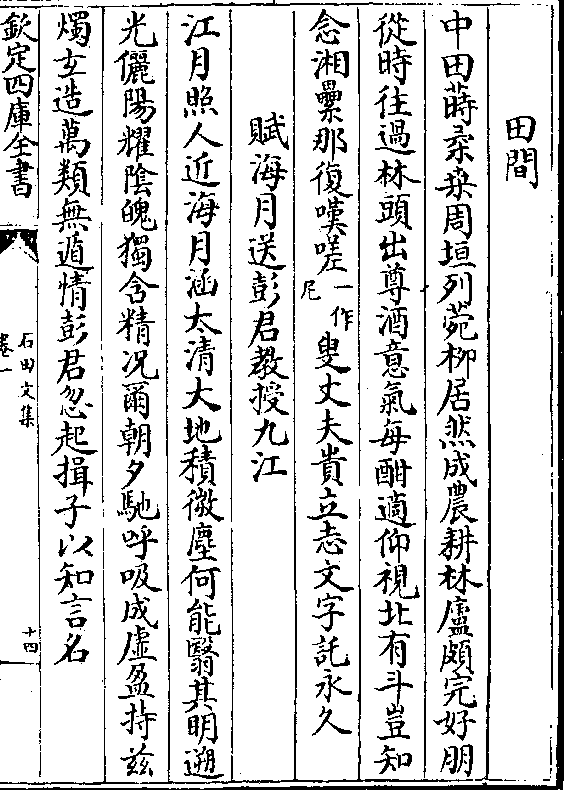 田間
中田蒔柔桑周垣列菀栁居然成農耕林廬頗完好朋
從時往過林頭出尊酒意氣每酣適仰視北有斗豈知
念湘纍那復嘆嗟一作尼叟丈夫貴立志文字託永久
賦海月送彭君教授九江
江月照人近海月涵太清大地積微塵何能翳其明遡
光儷陽耀陰魄獨含精况爾朝夕馳呼吸成虛盈持兹
燭玄造萬類無遁情彭君忽起揖子以知言名
欽定四庫全書
石田文集
卷一
十四